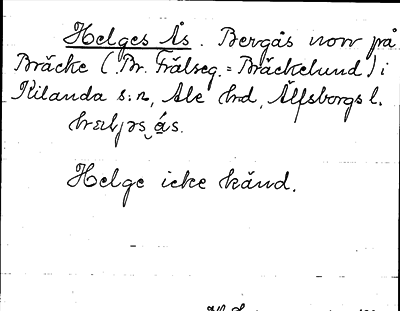 Helges Ås. Bergås norr på
Bräcke (Br. Frälseg. = Bräckelund) i
Kilanda s:n, Ale hd, Älfsborgs l.
Helge icke känd.